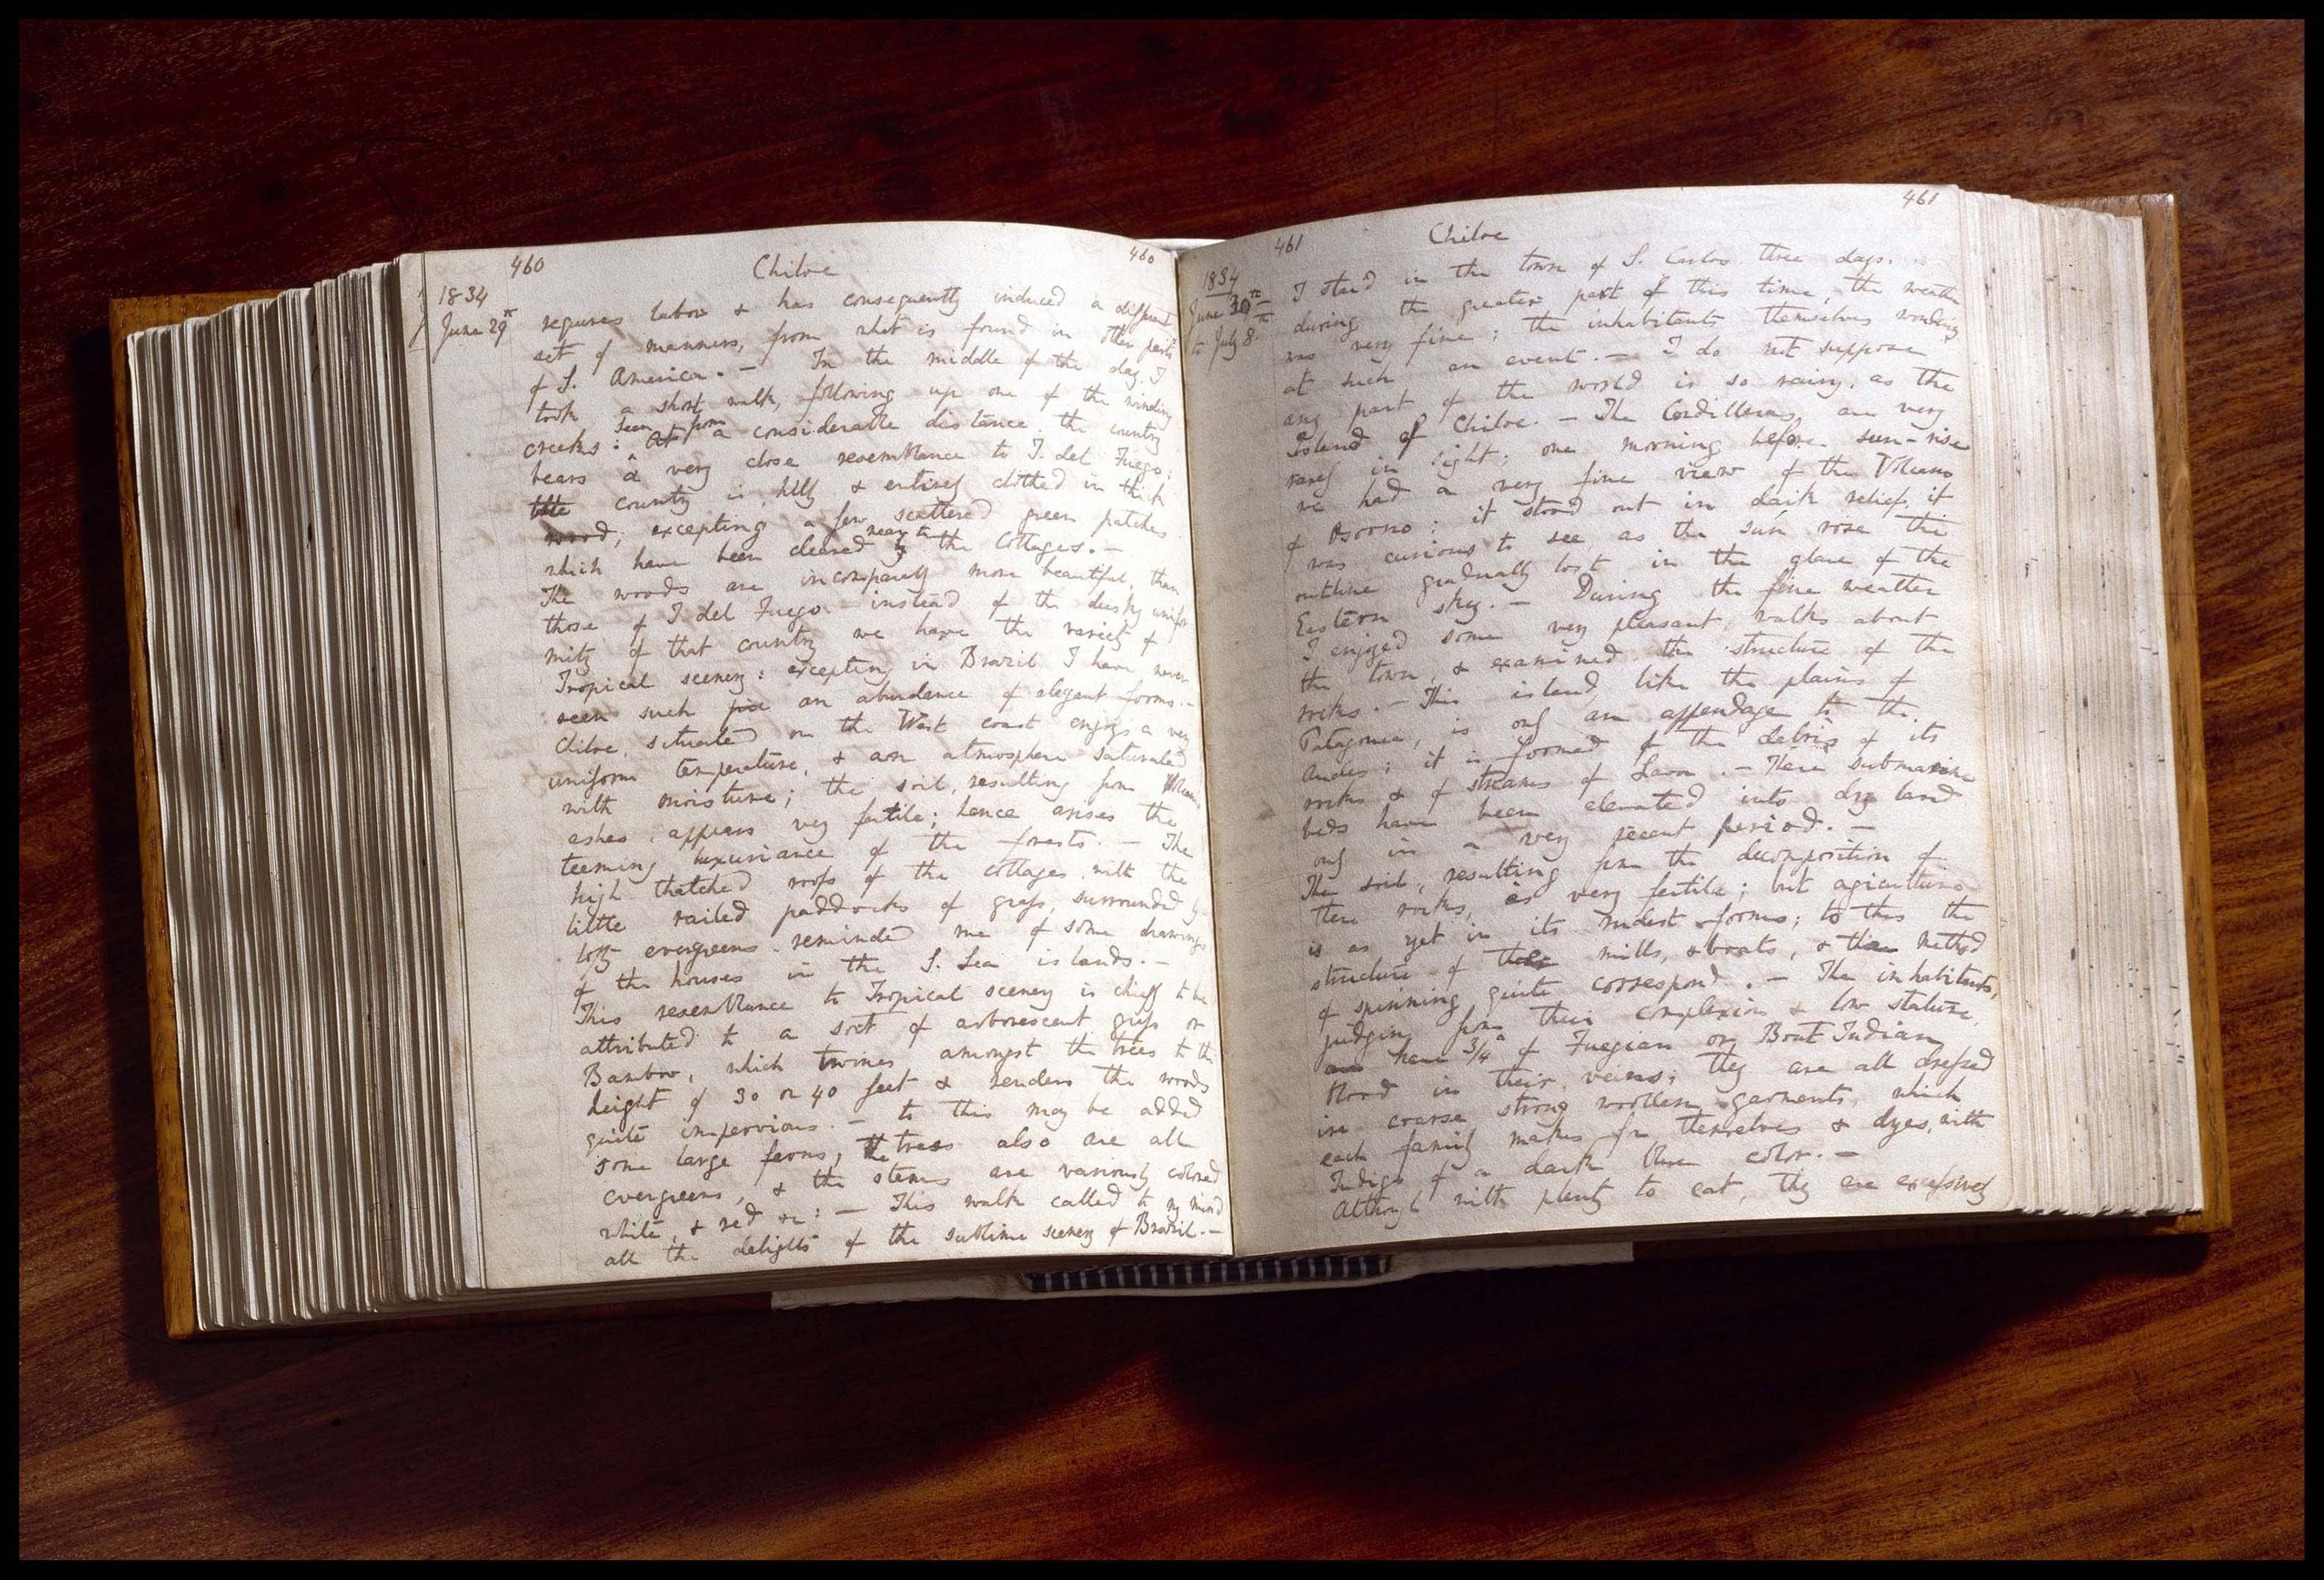 460 Chiloe 460
1834
June 29th
requires labor & has consequently induced a different
set of manners, from what is found in other parts
of S. America. — In the middle of the day I
took a short walk, following up one of the winding
creeks: At seen from a considerable distance the country
bears a very close resemblance to T. del Fuego;
the country is hilly & entirely clothed in thick
wood, excepting a few scattered green patches
which have been cleared by near to the Cottages. —
The woods are incomparably more beautiful, than
those of T. del Fuego. instead of the dusky unifor-
mity of that country we have the variety of
Tropical scenery: excepting in Brazil I have never
seen such an abundance of elegant forms. —
Chiloe, situated on the West coast enjoys a very
uniform temperature, & an atmosphere saturated
with moisture; the soil, resulting from Volcanic
ashes, appears very fertile; hence arises the
teeming luxuriance of the forests. — The
high thatched roofs of the cottages with the
little railed paddocks of grass, surrounded by
lofty evergreens reminded me of some drawings
of the houses in the S. Sea islands. —
This resemblance to Tropical scenery is chiefly to be
attributed to a sort of arborescent grass or
Bamboo, which twines amongst the trees to the
height of 30 or 40 feet & renders the woods
quite impervious. — to this may be added
some large ferns; the trees also are all
evergreens, & the stems are variously colored
white, & red &c: — This walk called to my mind
all the delights of the sublime scenery of Brazil. —
461 Chiloe 461
1834
June 30th
to July 8th
I staid in the town of S. Carlos three days.
during the greater part of this time, the weather
was very fine; the inhabitants themselves wondering
at such an event. — I do not suppose
any part of the world is so rainy as the
Island of Chiloe. — The Cordilleras are very
rarely in sight; one morning before sun-rise
we had a very fine view of the Volcano
of Osorno; it stood out in dark relief, it
was curious to see as the sun rose the
outline gradually lost in the glare of the
Eastern sky. — During the fine weather
I enjoyed some very pleasant walks about
the town, & examined the structure of the
rocks. — This island, like the plains of
Patagonia, is only an appendage to the
Andes; it is formed of the debris of its
rocks & of streams of Lava. — These submarine
beds have been elevated into dry land
only in a very recent period. —
The soil, resulting from the decomposition of
these rocks, is very fertile; but agriculture
is as yet in its rudest forms; to this the
structure of their mills, & boats, & their method
of spinning quite correspond. — The inhabitants,
judging from their complexion & low stature,
have 3/4 of Fuegian or Boat Indian
blood in their veins; they are all dressed
in coarse strong woollen garments, which
each family makes for themselves & dyes, with
Indigo of a dark blue color. —
Although with plenty to eat, they are excessively